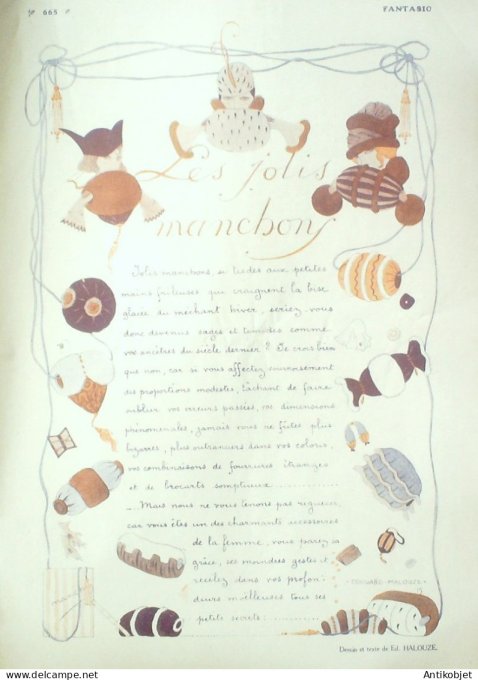 665
FANTASIO
Les jolis
manchons
Jolis manchons, si tiedes aux petites
mains frileuses que craignent la bise
glacée du méchant hiver, seriez vous
donc devenus sages et timides comme
vos ancêtres du siècle dernier ? Je crois bien
que non, car si vous affectez sournoisement
des proportions modestes, tâchant de faire
oublier vos erreurs passées, vos dimensions
phénoménales, jamais vous ne fûtes plus
bizarres, plus outranciers dans vos coloris,
vos combinaisons de fourrures étranges
et de brocarts somptueux..............
... Mais nous ne vous tenons pas rigueur,
car vous êtes un des charmants accessoires
de la femme, vous parez sa
grâce, ses moindres gestes et
recelez dans vos profon-
deurs moelleuses tous ses
petits secrets..............
EDOUARD-HALOUZE-
Dessin et texte de Ed. HALOUZE.
© Antikobjet
Antikobjet.com